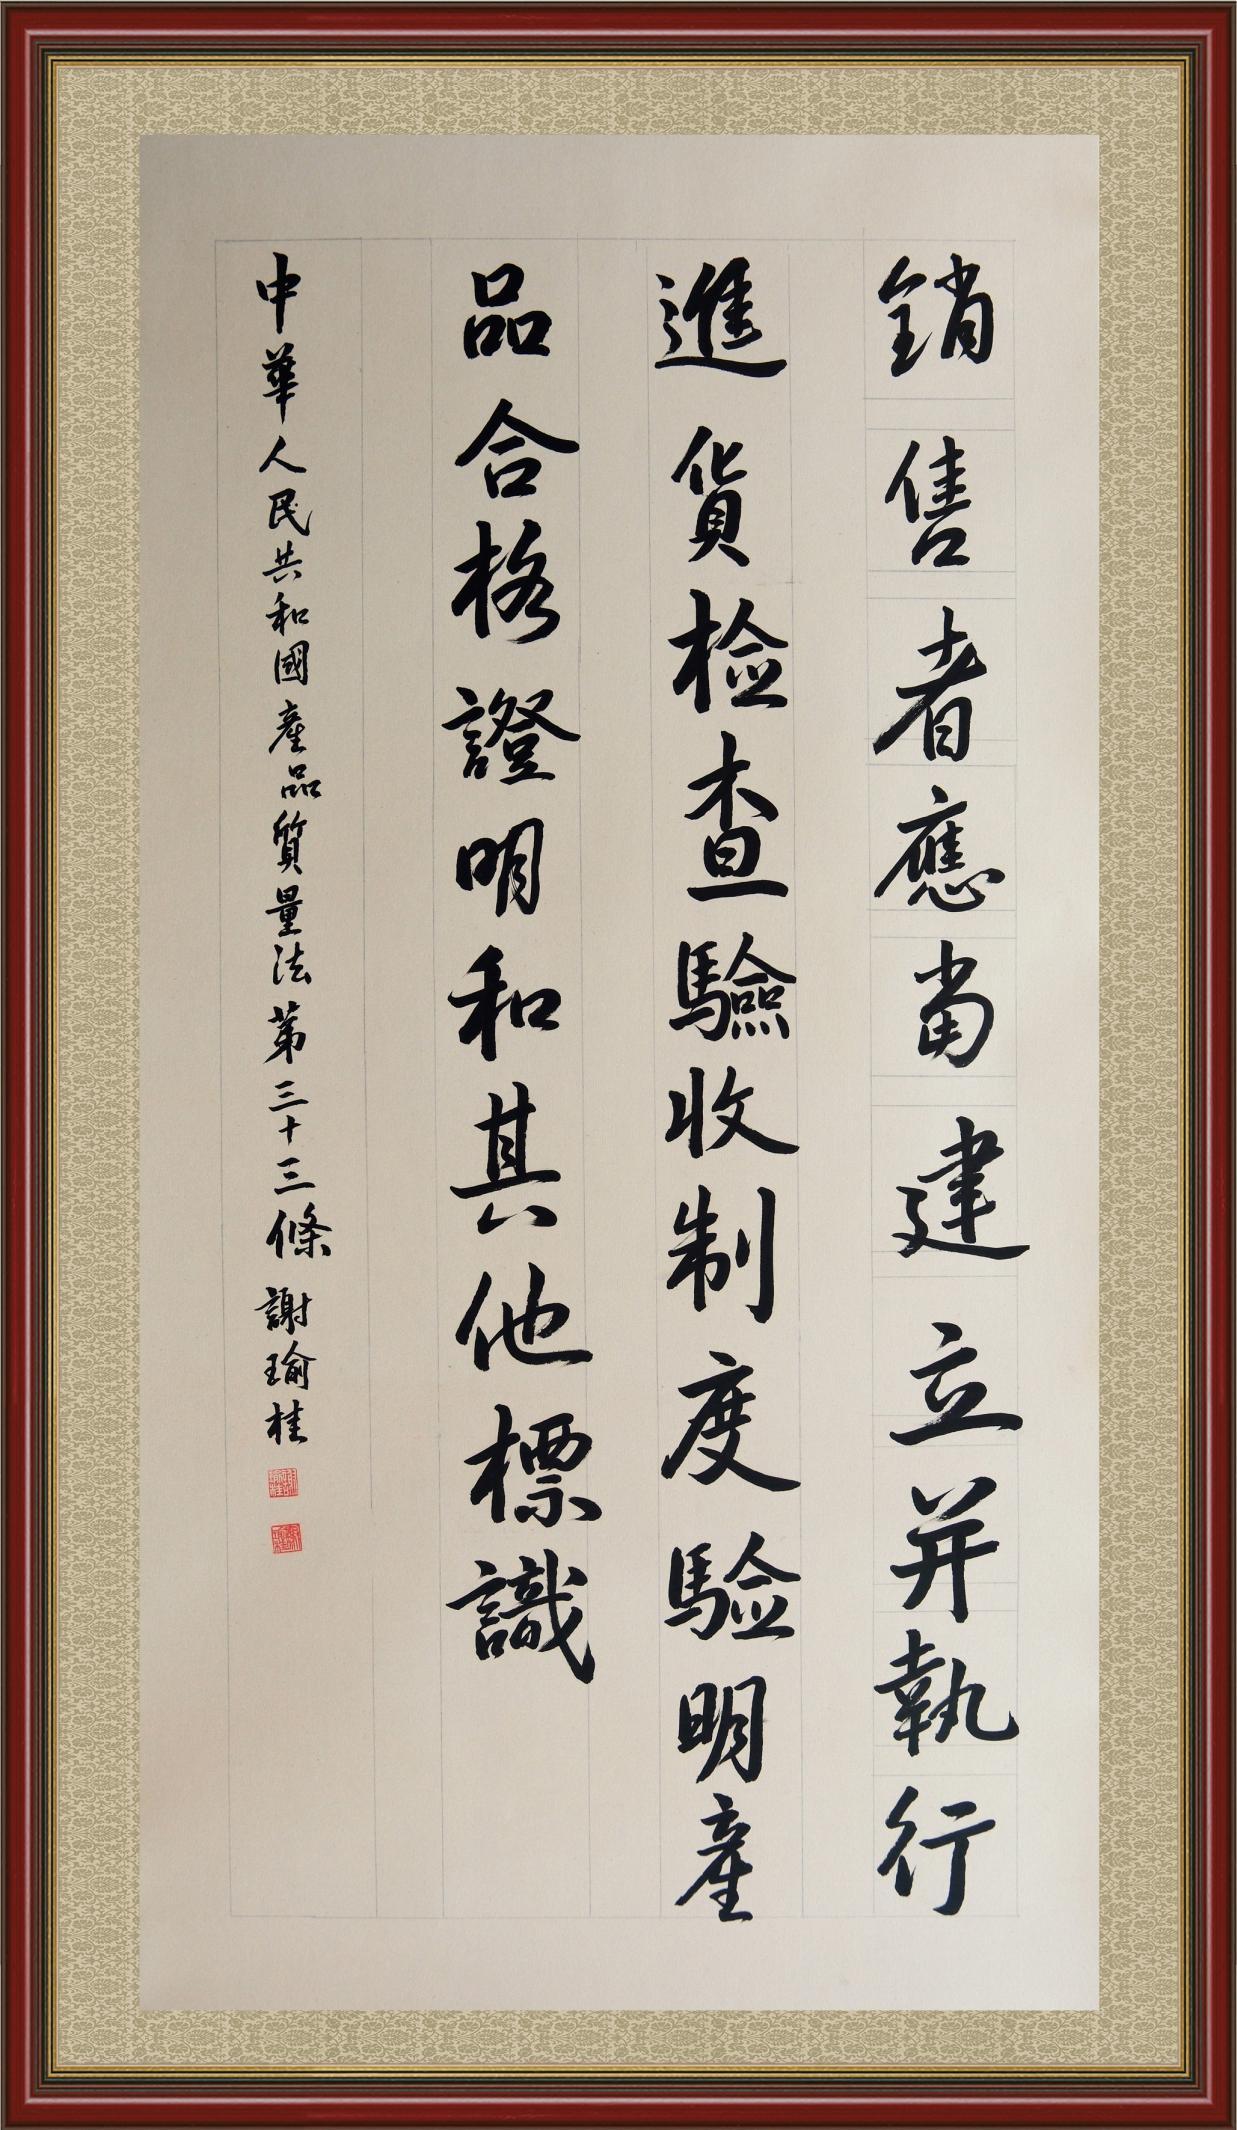 銷售者應當建立并執行
進貨检查驗收制度验明産
品合格證明和其他標識
中華人民共和國産品質量法第三十三條 謝瑜桂